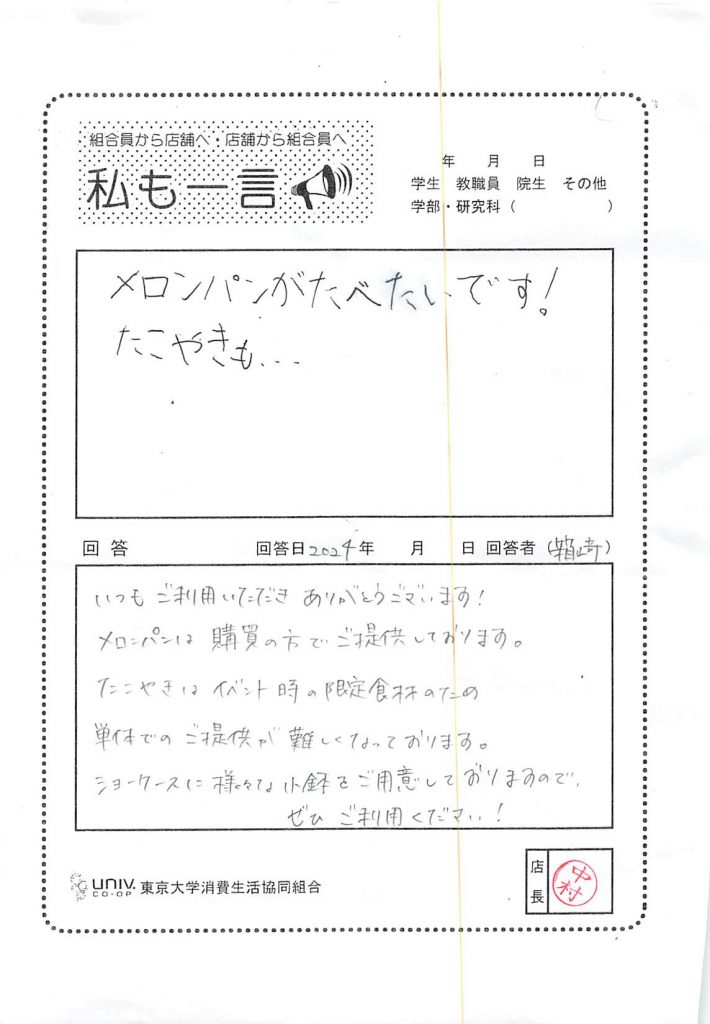 組合員から店舗へ・店舗から組合員へ
私も一言
年 月 日
学生 教職員 院生 その他
学部・研究科( )
メロンパンがたべたいです!
たこやきも...
回答 回答日2024年 月 日 回答者(箱崎)
いつもご利用いただきありがとうございます!
メロンパンは購買の方でご提供しております。
たこやきはイベント時の限定食材のため
単体でのご提供が難しくなっております。
ショーケースに様々な小鉢をご用意しておりますので、
ぜひご利用ください!
UNIV. CO-OP 東京大学消費生活協同組合
店長
中村